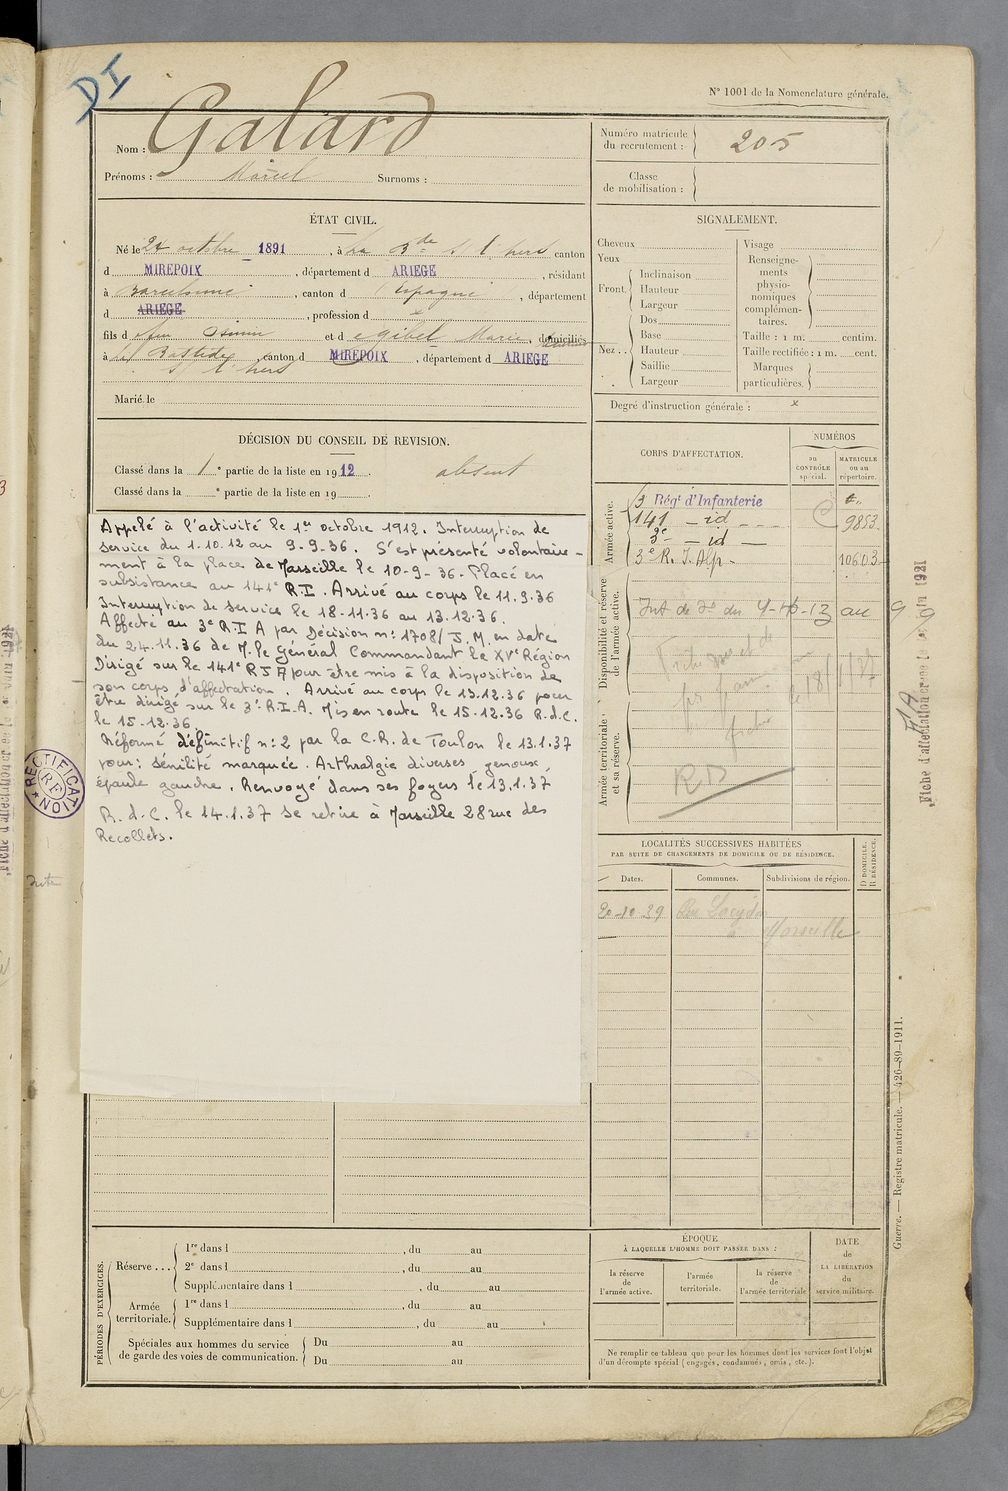 DI
N° 1001 de la Nomenclature générale.
Nom : Galard
Prénoms : Marcel Surnoms :
ÉTAT CIVIL.
Né le 24 octobre 1891, à La B.de S. l'hers canton
d MIREPOIX, département d ARIEGE, résidant
à Barcelonne, canton d Espagne, département
d ARIEGE, profession d x
fils d feu et d e Gibel Marie, domiciliés
à la Bastide, canton d MIREPOIX, département d ARIEGE
S l'hers
Marié le
DÉCISION DU CONSEIL DE REVISION.
Classé dans la 1e partie de la liste en 1912. absent
Classé dans la e partie de la liste en 19
Appelé à l'activité le 1er octobre 1912. Interruption de
service du 1.10.12 au 9-9-36. S'est présenté volontaire-
ment à la place de Marseille le 10-9-36. Placé en
subsistance au 141e R.I. Arrivé au corps le 11.9.36
Interruption de service le 18-11.36 au 13.12.36.
Affecté au 3e R.I A par Décision n: 1708/ J.M. en date
du 24.11.36 de M. le Général Commandant le XVe Région
Dirigé sur le 141e R I A pour être mis à la disposition de
son corps d'affectation. Arrivé au corps le 13.12.36 pour
être dirigé sur le 3e R.I.A. Mis en route le 15.12.36 R.d.C.
le 15-12.36.
Réformé définitif n: 2 par la C.R. de Toulon le 13.1.37
pour: sénilité marquée. Arthralgie diverses genoux,
épaule gauche. Renvoyé dans ses foyers le 13.1.37
R.d.C. le 14.1.37 se retire à Marseille 28 rue des
Recollets.
RECTIFICATION
RF
Numéro matricule
du recrutement : 205
Classe
de mobilisation :
SIGNALEMENT.
Cheveux
Yeux
Front.
Inclinaison
Hauteur
Largeur
Nez..
Dos
Base
Hauteur
Saillie
Largeur
Visage
Renseigne-
ments
physio-
nomiques
complémen-
taires.
Taille : 1 m. centim.
Taille rectifiée : 1 m. cent.
Marques
particulières.
Degré d'instruction générale : x
CORPS D'AFFECTATION.
NUMÉROS
au
CONTRÔLE
spécial.
MATRICULE
ou au
répertoire.
Armée active.
Régt d'Infanterie
141 - id - 9853.
3e - id -
3e R. I. Alp. 10603
Disponibilité et réserve
de l'armée active.
Armée territoriale
et sa réserve.
RD
LOCALITÉS SUCCESSIVES HABITÉES
PAR SUITE DE CHANGEMENTS DE DOMICILE OU DE RÉSIDENCE.
Dates.
Communes.
Subdivisions de région.
D DOMICILE.
R RÉSIDENCE.
20-10-29 Rue Lacydon
à Marseille
PÉRIODES D'EXERCICES.
Réserve ...
1re dans l , du au
2e dans l , du au
Supplémentaire dans l , du au
Armée
territoriale.
1re dans l , du au
Supplémentaire dans l , du au
Spéciales aux hommes du service
de garde des voies de communication.
Du au
Du au
ÉPOQUE
À LAQUELLE L'HOMME DOIT PASSER DANS :
la réserve
de
l'armée active.
l'armée
territoriale.
la réserve
de
l'armée territoriale
DATE
de
LA LIBÉRATION
du
service militaire.
Ne remplir ce tableau que pour les hommes dont les services font l'objet
d'un décompte spécial (engagés, condamnés, omis, etc.).
Guerre. — Registre matricule. — 426-89-1911.